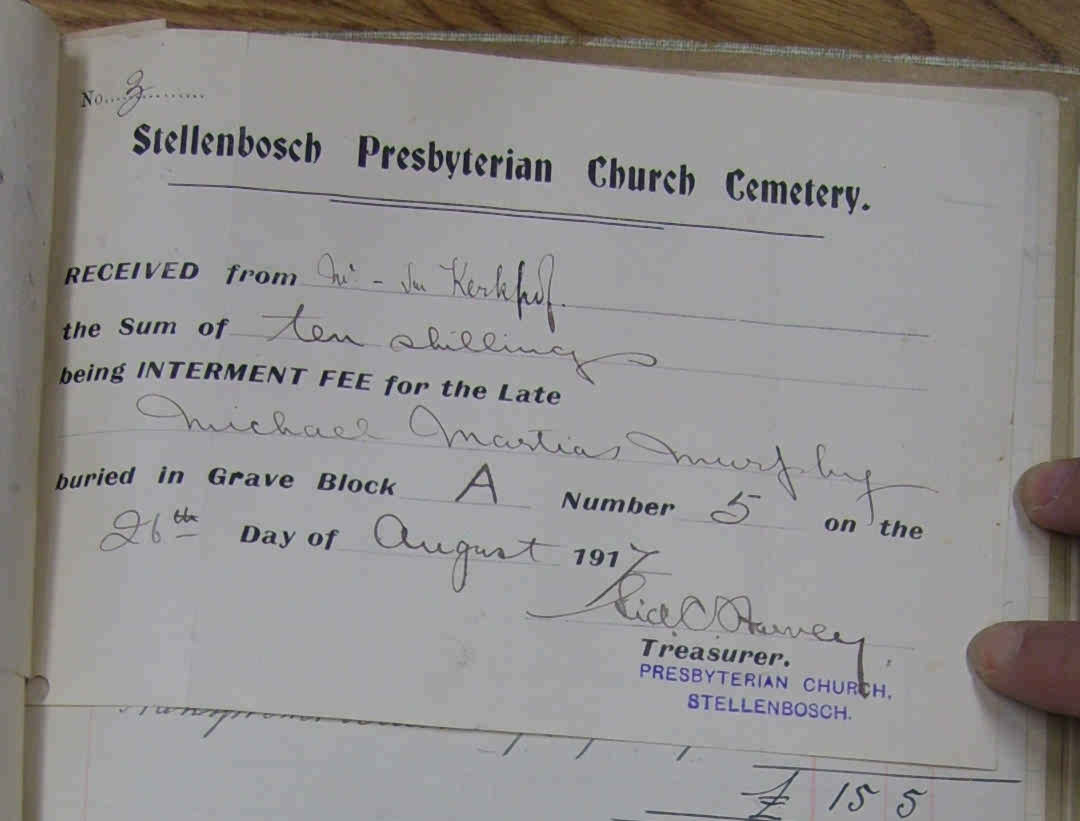 No. 3
Stellenbosch Presbyterian Church Cemetery.
RECEIVED from Kerkhof.
the Sum of ten shillings
being INTERMENT FEE for the Late
Michael Martias Murphy
buried in Grave Block A Number 5 on the
26th Day of August 1917
Harvey
Treasurer.
PRESBYTERIAN CHURCH,
STELLENBOSCH.
£ 15 5